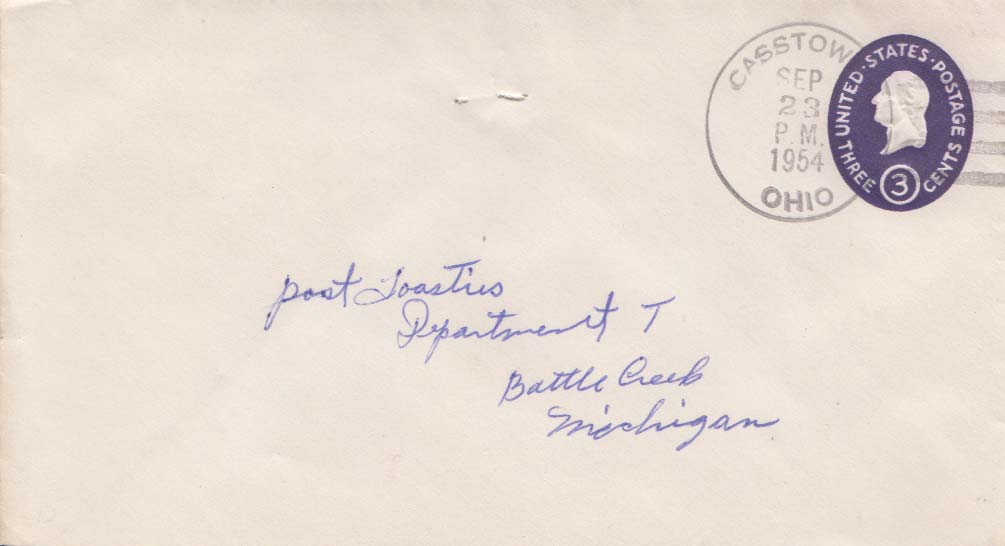 CASSTOW
SEP
23
P.M.
1954
OHIO
UNITED·STATES·POSTAGE
THREE 3 CENTS
post Toasties
Department T
Battle Creek
Michigan